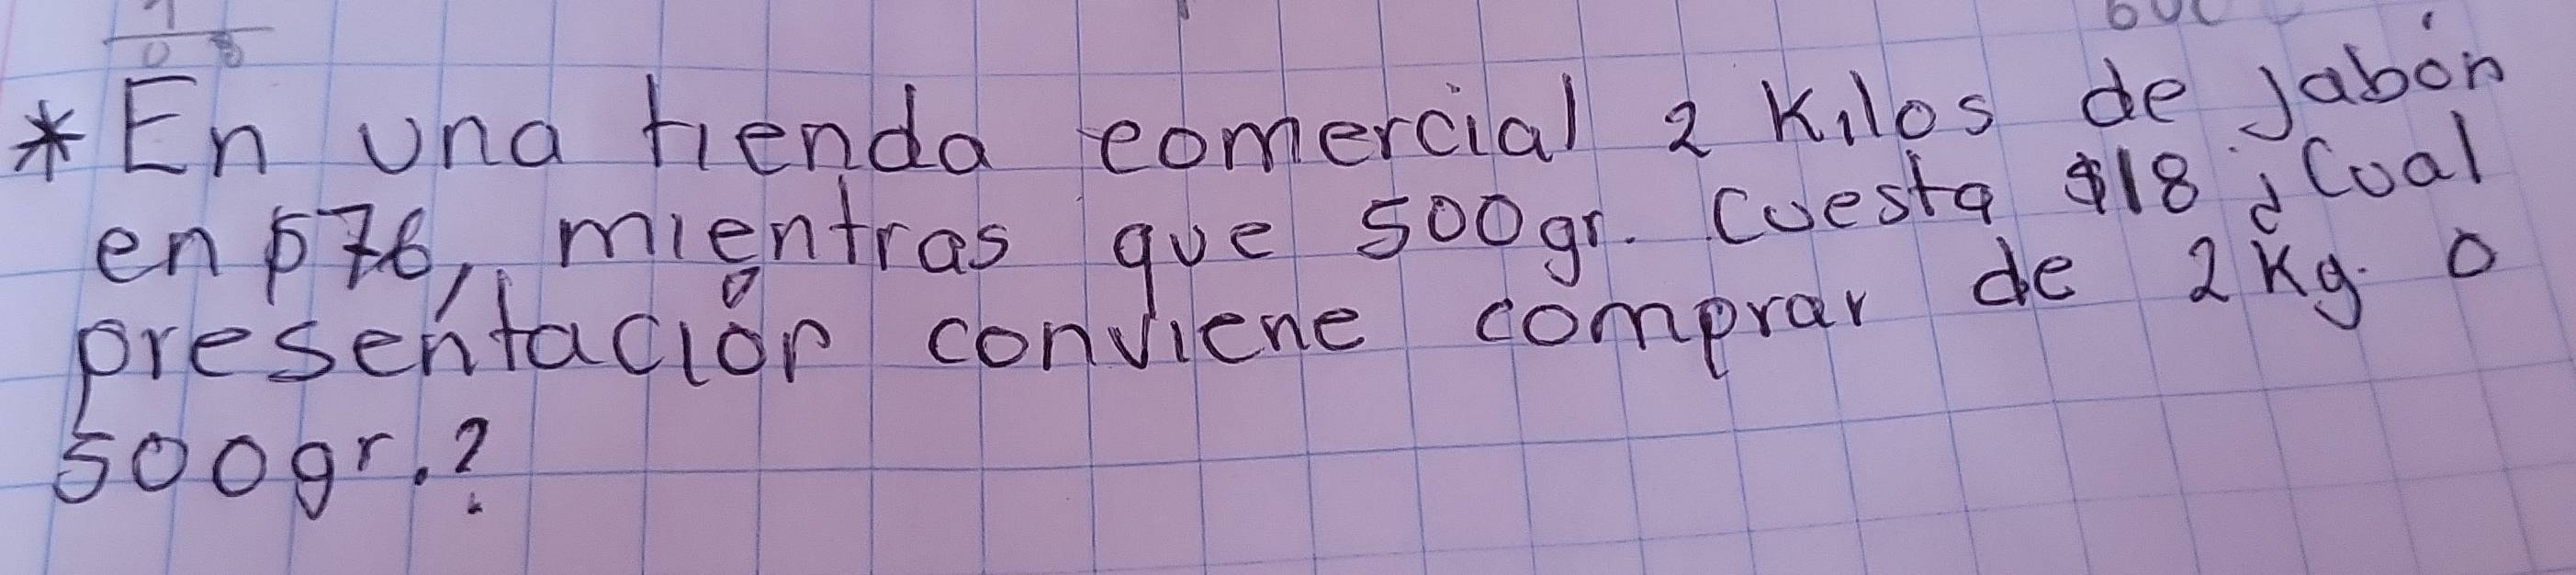 * En una tienda comercial 2 Kilos de Jabón
en $76, mientras que 500gr. Cuesta $18 ¿Cual
presentación conviene comprar de 2Kg. o
500gr.?